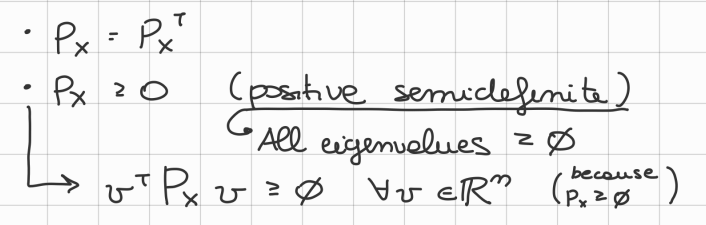 • Pₓ = Pₓᵀ
• Pₓ ≥ 0 (positive semidefinite)
All eigenvalues ≥ ∅
vᵀ Pₓ v ≥ ∅ ∀v ∈ ℝⁿ (because Pₓ ≥ ∅)